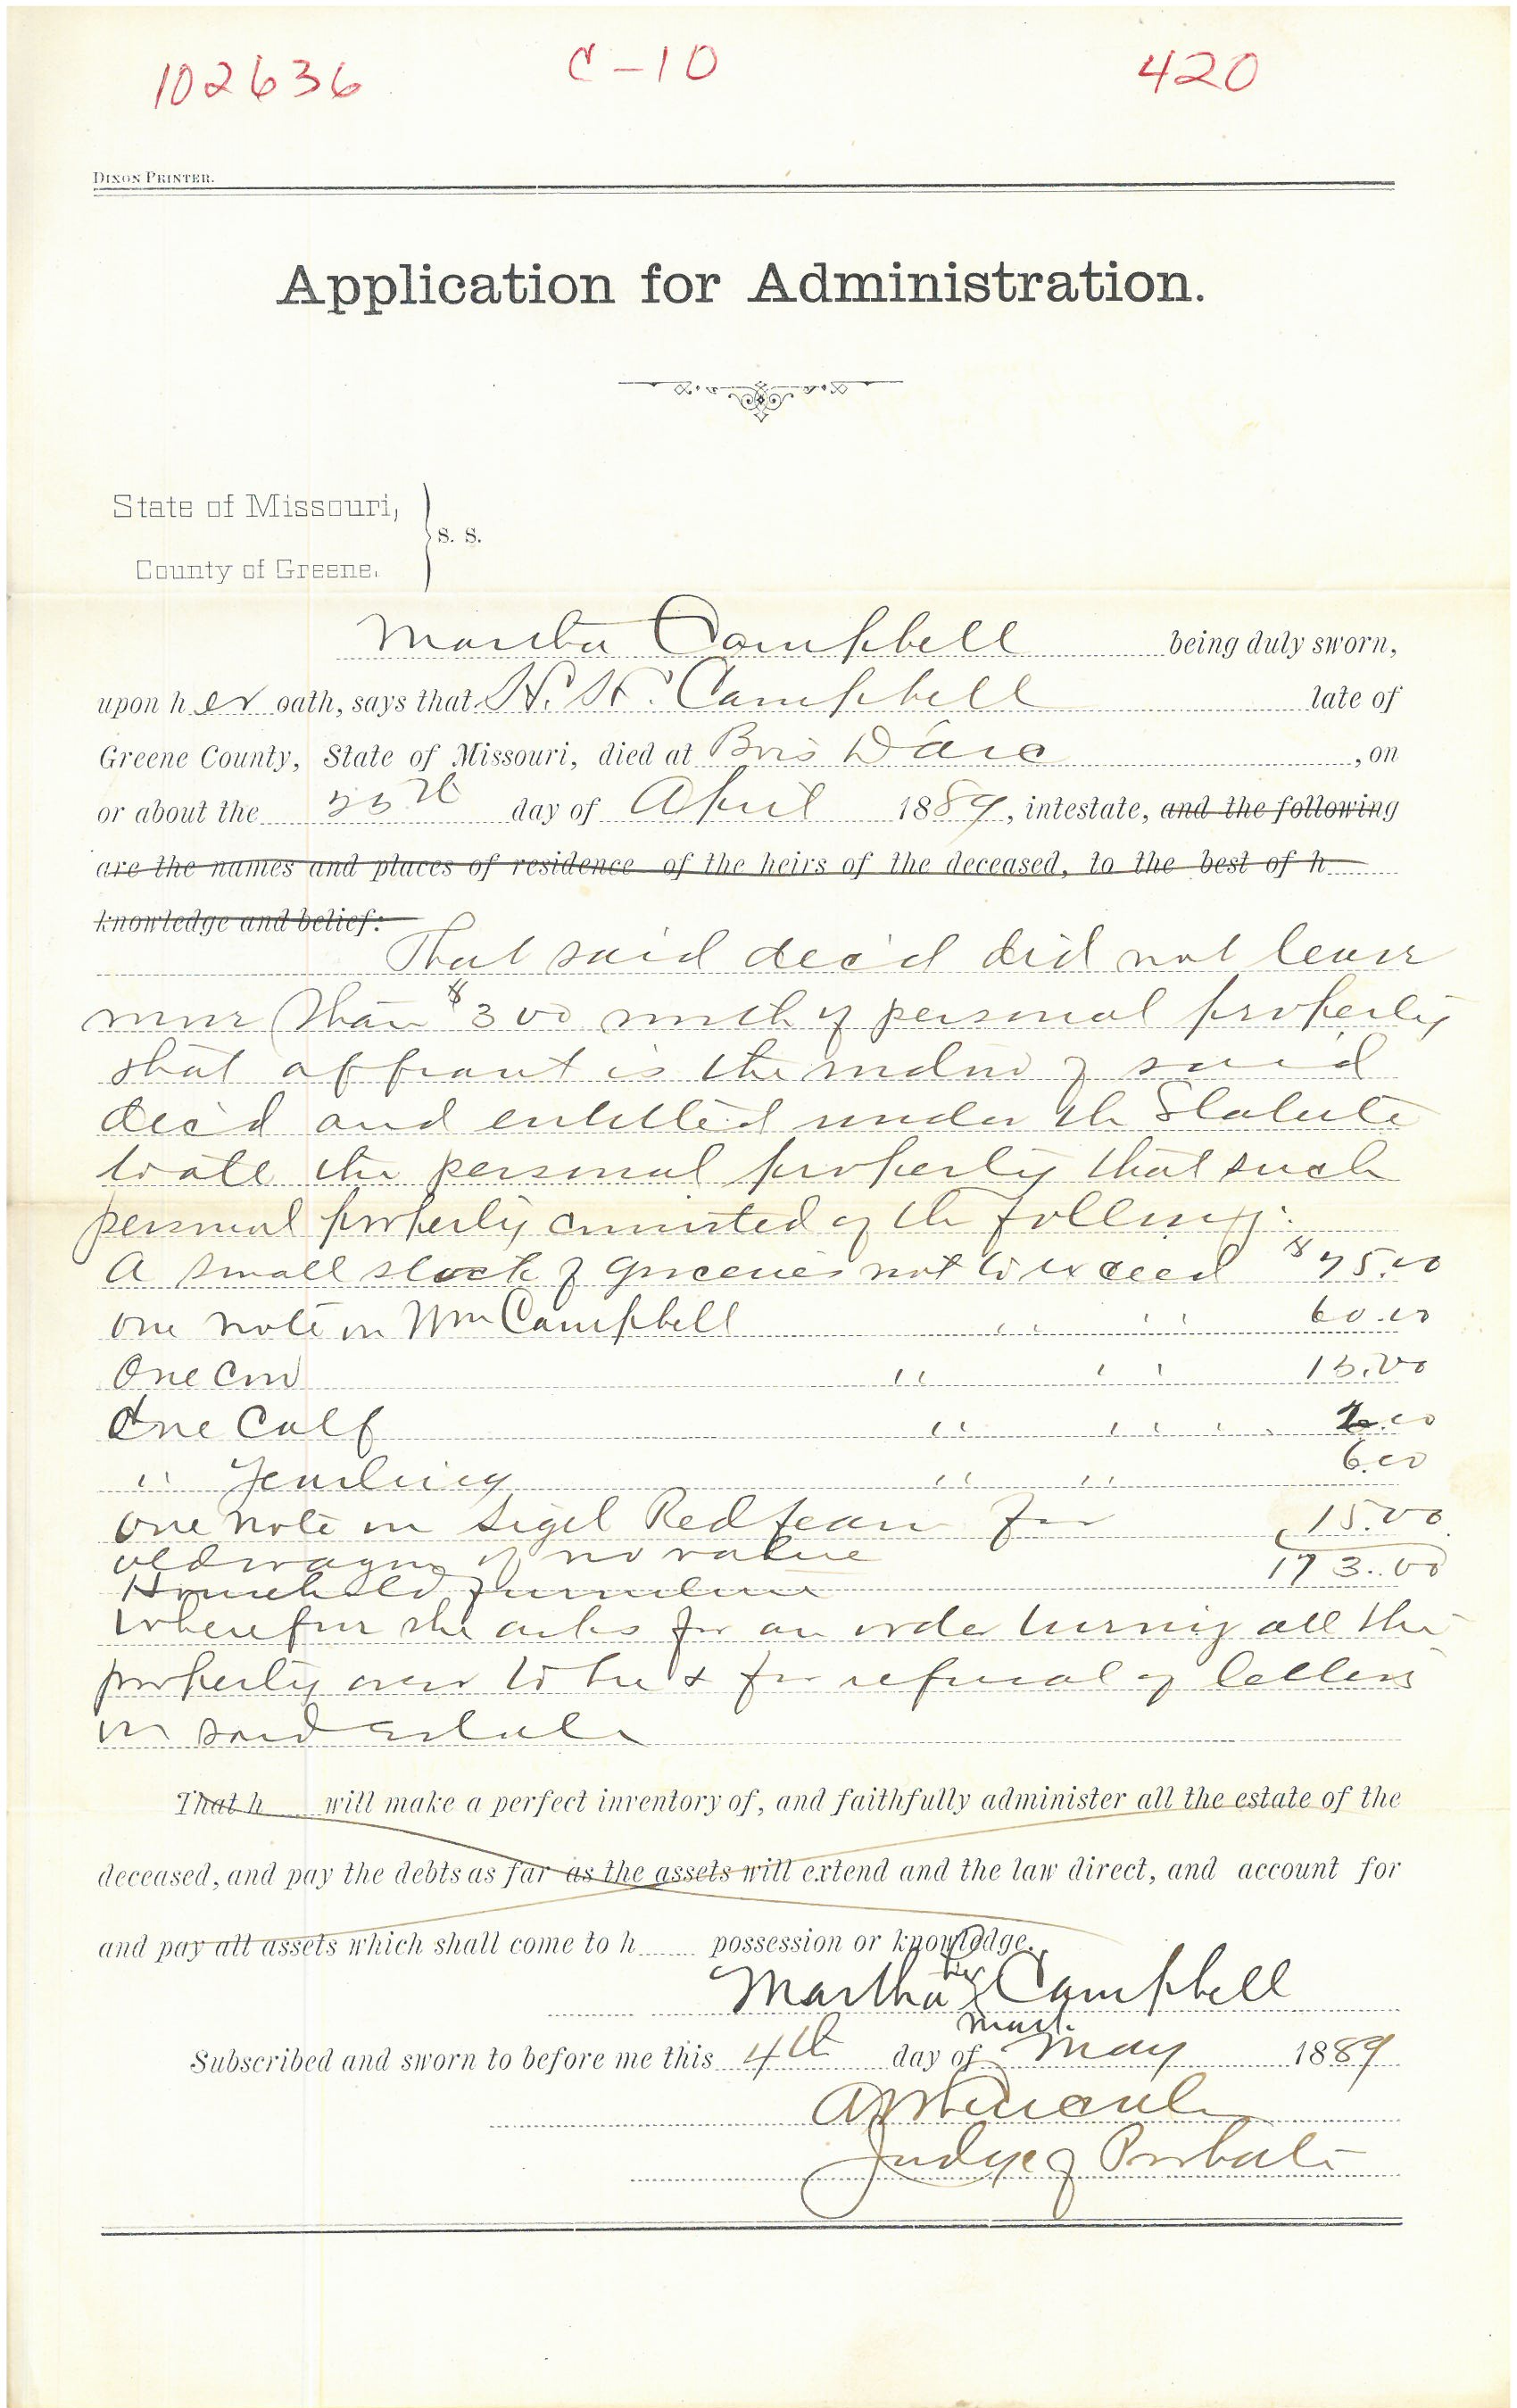 102636 C-10 420
DIXON PRINTER.
Application for Administration.
State of Missouri,
County of Greene. } S. S.
Martha Campbell being duly sworn,
upon her oath, says that Campbell late of
Greene County, State of Missouri, died at Bois D'arc, on
or about the day of April 1889, intestate, and the following
are the names and places of residence of the heirs of the deceased, to the best of h
knowledge and belief:
That said dec'd did not leave
more than $300 worth of personal property
that affiant is the widow of said
dec'd and entitled under the Statute
to all the personal property that such
personal property consisted of the following:
A small stock of groceries not to exceed $75.00
one note on Wm Campbell " " 60.00
One Cow " " 15.00
One Calf " " 2.00
" Yearling " " 6.00
one note on Sigel Redfearn for 15.00
old wagon of no value 173.00
Household furniture
Wherefore she asks for an order turning all the
property over to her & for refusal of letters
on said estate
That h will make a perfect inventory of, and faithfully administer all the estate of the
deceased, and pay the debts as far as the assets will extend and the law direct, and account for
and pay all assets which shall come to h possession or knowledge.
Martha her x mark Campbell
Subscribed and sworn to before me this 4th day of May 1889
Judge of Probate